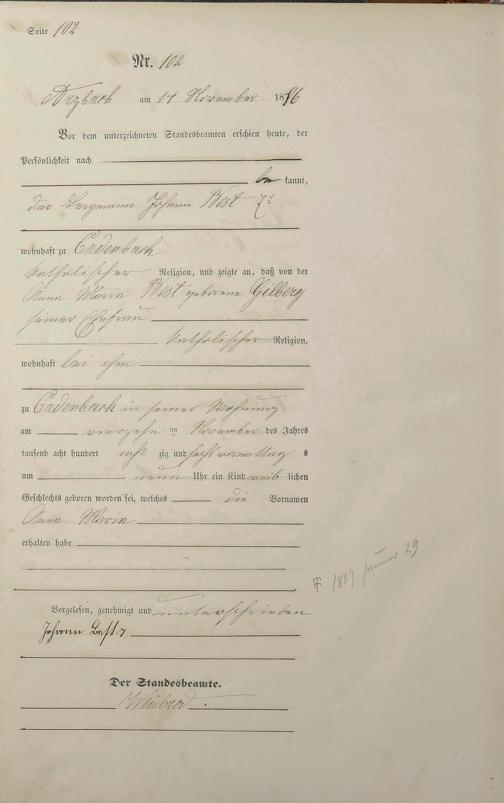 Seite 102
Nr. 102
Arzbach am 14 November 1886
Vor dem unterzeichneten Standesbeamten erschien heute, der
Persönlichkeit nach
be kannt,
der Bergmann Johann Best 7r
wohnhaft zu Cadenbach
katholischer Religion, und zeigte an, daß von der
Anna Maria Best geborene Gilberg
seiner Ehefrau
katholischer Religion,
wohnhaft bei ihm
zu Cadenbach in seiner Wohnung
am vierzehn ten November des Jahres
tausend acht hundert acht zig und sechs vormittag s
um neun Uhr ein Kind weib lichen
Geschlechts geboren worden sei, welches die Vornamen
Anna Maria
erhalten habe
1887 Januar 29
Vorgelesen, genehmigt und unterschrieben
Johann Best 7
Der Standesbeamte.